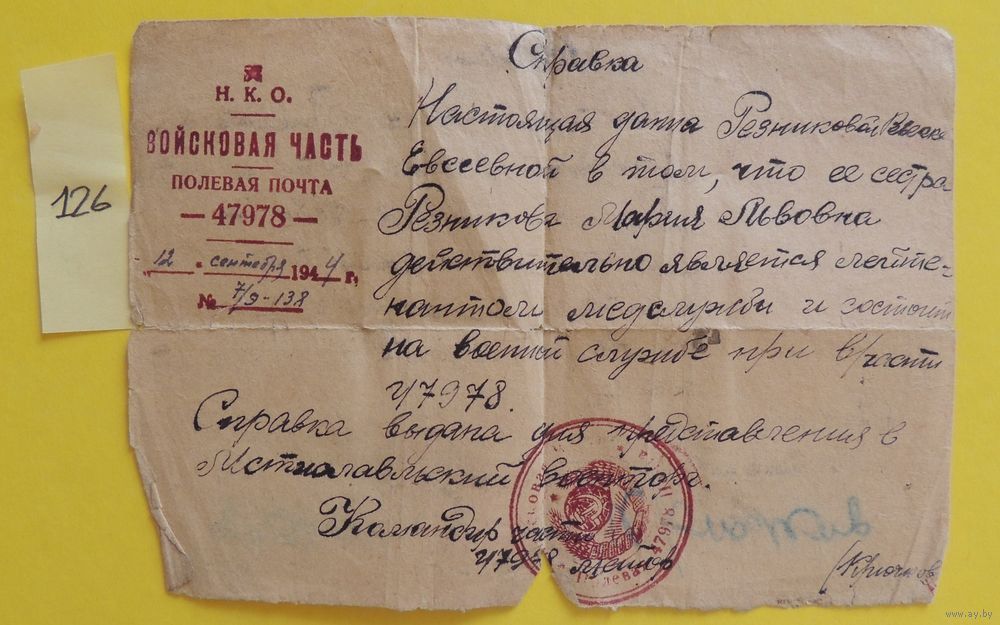 126
Н. К. О.
ВОЙСКОВАЯ ЧАСТЬ
ПОЛЕВАЯ ПОЧТА
— 47978 —
"12" сентября 1944 г.
№ 7/9-138
Справка
Настоящая дана Резниковой
Евсеевной в том, что ее сестра
Резникова Мария Львовна
действительно является лейте-
нантом медслужбы и состоит
на военной службе при в/части
47978.
Справка выдана для представления в
Мстиславльский военторг.
Командир части
47978 майор
(Крючков
47978
www.ay.by